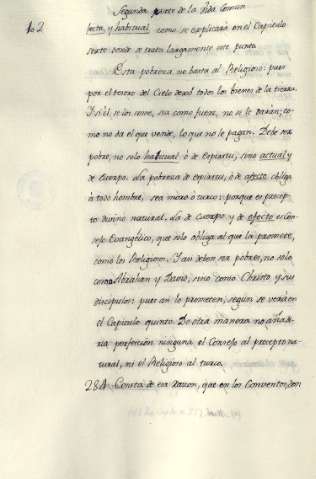 102
Segunda parte de la Vida Comun
fecta, y habitual, como se explicará en el Capitulo
sexto donde se trata largamente este punto.
Esta pobreza, no basta al Religioso: pues
por el tesoro del Cielo dexó todos los bienes de la tierra.
Y si él se los come, sea como fuere, no se le darán; co-
mo no da el que vende, lo que no le pagan. Debe ser
pobre, no solo habitual, ò de Espiritu, sino actual y
de Cuerpo. La pobreza de espiritu, ò de afecto, obliga
à todo hombre, sea moro ò turco: porque es precep-
to divino natural. La de Cuerpo y de efecto es Con-
sejo Evangélico, que solo obliga al que la promete,
como los Religiosos. Y asi deben ser pobres, no solo
como Abrahan y David, sino como Christo y sus
discipulos: pues asi lo prometen; segun se verá en
el Capitulo quinto. De otra manera no añadi-
ria perfeccion ninguna el Consejo al precepto na-
tural, ni el Religioso al turco.
284 Consta de esa razon, que en los Conventos, don-